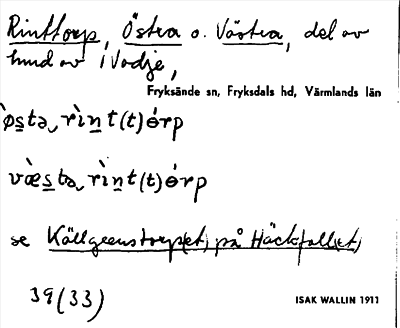 Rinttorp, Östra o. Västra, del av
hmd av i Vadje,
Fryksände sn, Fryksdals hd, Värmlands län
`øs̲tə‿rìn̲t(t)órp
væ̀s̲tə‿rìn̲t(t)órp
se Källgeenstorp(et) på Häckfall(et)
39(33)
ISAK WALLIN 1911